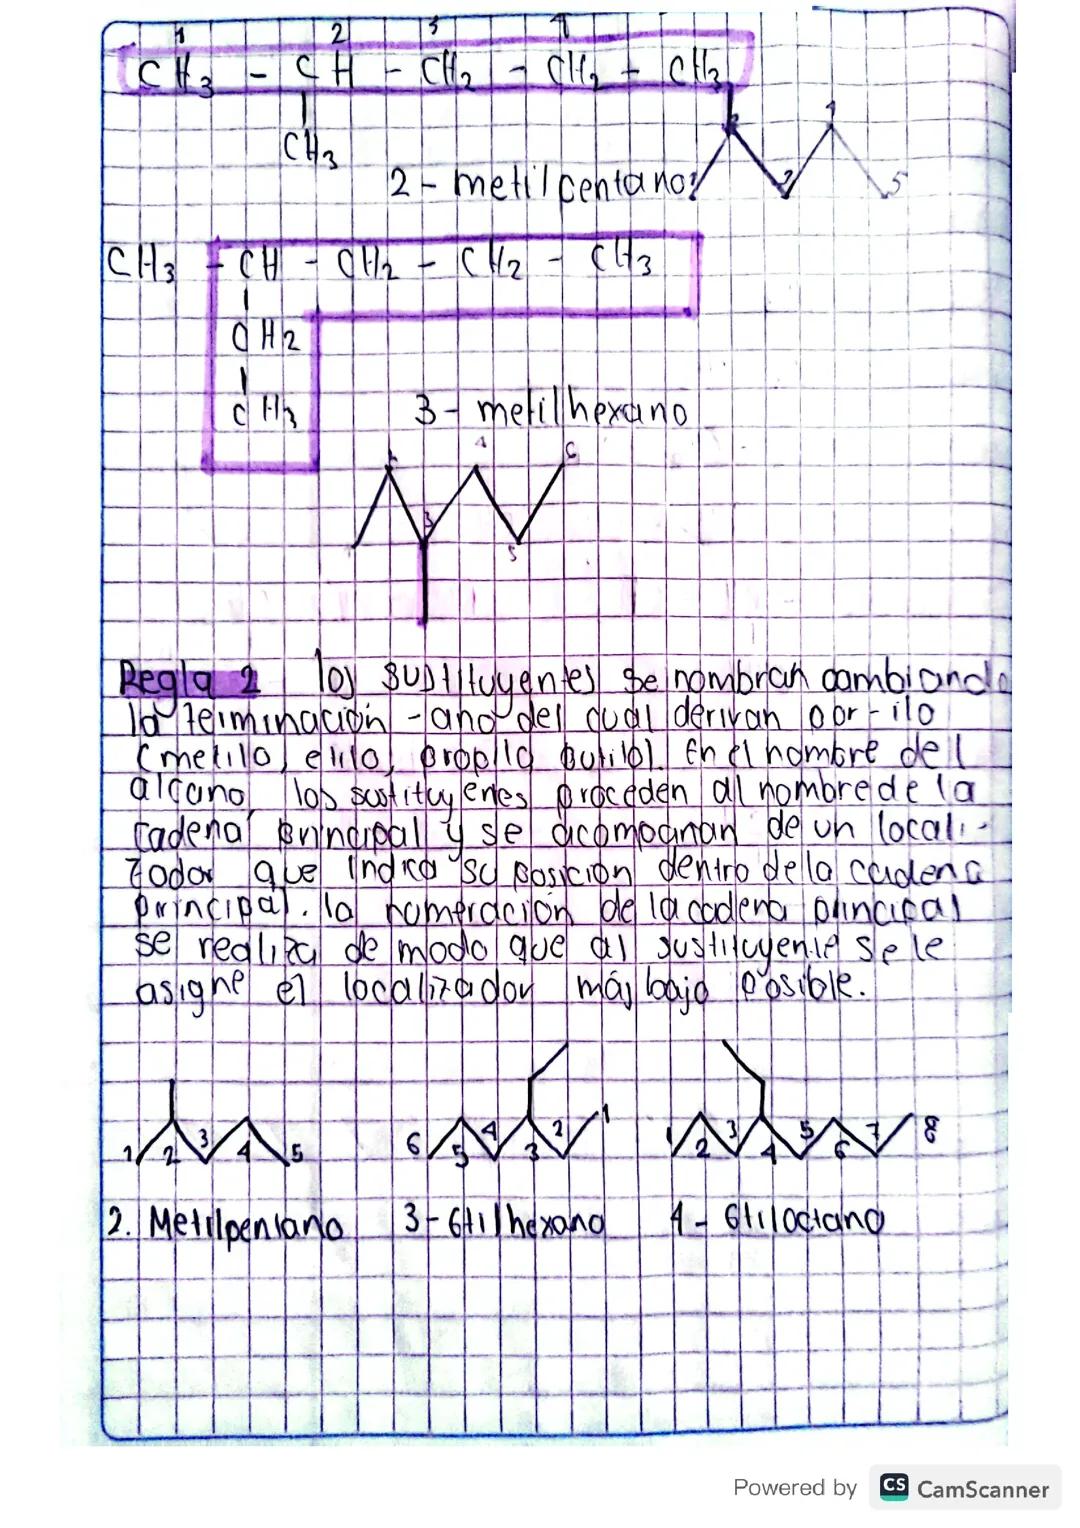 1 2 3 4
CH3 - CH - CH2 - CH2 - CH3
CH3
2 - metilpentano
2 3 4 5
CH3 - CH - CH2 - CH2 - CH3
CH2
CH3
3 - metilhexano
4 6
3
5
Regla 2 los sustituyentes se nombran cambiando
la terminación -ano del cual derivan por -ilo
(metilo, etilo, propilo butilo). En el nombre del
alcano, los sustituyenes proceden al nombre de la
cadena principal y se acompanan de un locali-
zador que indica su posición dentro de la cadena
principal. la numeración de la cadena principal
se realiza de modo que al sustituyente se le
asigne el localizador más bajo posible.
1 2 3 4 5
6 5 4 3 2 1
1 2 3 4 5 6 7 8
2. Metilpentano 3-Etilhexano 4-Etiloctano
Powered by CS CamScanner